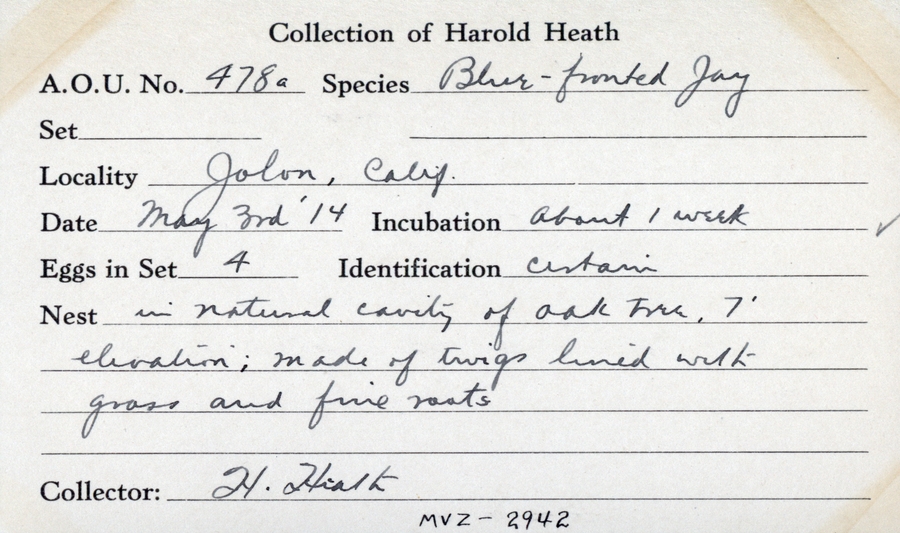 Collection of Harold Heath
A.O.U. No. 478a Species Blue-fronted Jay
Set
Locality Jolon, Calif.
Date May 3rd '14 Incubation about 1 week
Eggs in Set 4 Identification certain
Nest in natural cavity of oak tree, 7'
elevation; made of twigs lined with
grass and fine roots
Collector: H. Heath
MVZ - 2942